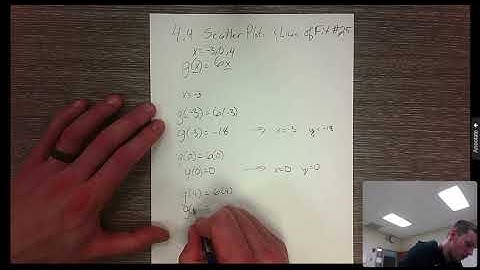 4.4 Scatter Plots & Lines of Fit #25
x = -3, 0, 4
g(x) = 6x
x = -3
g(-3) = 6(-3)
g(-3) = -18 → x = -3 y = -18
g(0) = 6(0)
g(0) = 0 → x = 0 y = 0
g(4) = 6(4)
g(4) =
Annotate